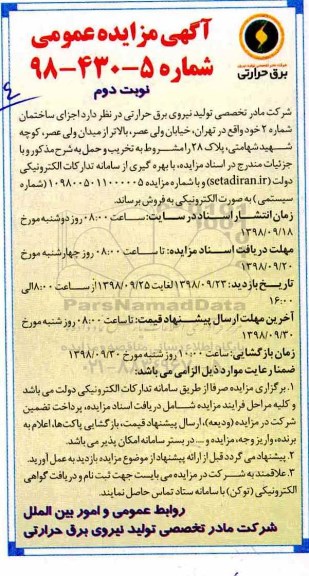 آگهی مزایده عمومی
شماره ۵-۴۳۰-۹۸
شرکت مادر تخصصی تولید نیروی
برق حرارتی
نوبت دوم
شرکت مادر تخصصی تولید نیروی برق حرارتی در نظر دارد اجزای ساختمان
شماره ۲ خود واقع در تهران، خیابان ولی عصر، بالاتر از میدان ولی عصر، کوچه
شهید شهامتی، پلاک ۲۸ را مشروط به تخریب و حمل به شرح مذکور و با
جزئیات مندرج در اسناد مزایده، با بهره گیری از سامانه تدارکات الکترونیکی
دولت (setadiran.ir) و با شماره مزایده ۱۰۹۸۰۰۵۰۱۱۰۰۰۰۰۵ (شماره
سیستمی) به صورت الکترونیکی به فروش برساند.
زمان انتشار اسناد در سایت: ساعت ۰۸:۰۰ روز دوشنبه مورخ
۱۳۹۸/۰۹/۱۸
مهلت دریافت اسناد مزایده: تا ساعت ۰۸:۰۰ روز چهارشنبه مورخ
۱۳۹۸/۰۹/۲۰
تاریخ بازدید: ۱۳۹۸/۰۹/۲۳ لغایت ۱۳۹۸/۰۹/۲۵ از ساعت ۸:۰۰ الی
۱۶:۰۰
آخرین مهلت ارسال پیشنهاد قیمت: تا ساعت ۰۸:۰۰ روز شنبه مورخ
۱۳۹۸/۰۹/۳۰
زمان بازگشایی: ساعت ۱۰:۰۰ روز شنبه مورخ ۱۳۹۸/۰۹/۳۰
ضمنا رعایت موارد ذیل الزامی می باشد:
۱. برگزاری مزایده صرفا از طریق سامانه تدارکات الکترونیکی دولت می باشد
و کلیه مراحل فرایند مزایده شامل دریافت اسناد مزایده، پرداخت تضمین
شرکت در مزایده (ودیعه)، ارسال پیشنهاد قیمت، بازگشایی پاکت ها، اعلام به
برنده، واریز وجه، مزایده و ... در بستر سامانه امکان پذیر می باشد.
۲. پیشنهاد می گردد قبل از ارائه پیشنهاد از موضوع مزایده بازدید به عمل آورید.
۳. علاقمندان به شرکت در مزایده می بایست جهت ثبت نام و دریافت گواهی
الکترونیکی (توکن) با سامانه ستاد تماس حاصل نمایند.
روابط عمومی و امور بین الملل
شرکت مادر تخصصی تولید نیروی برق حرارتی
ParsNamadData